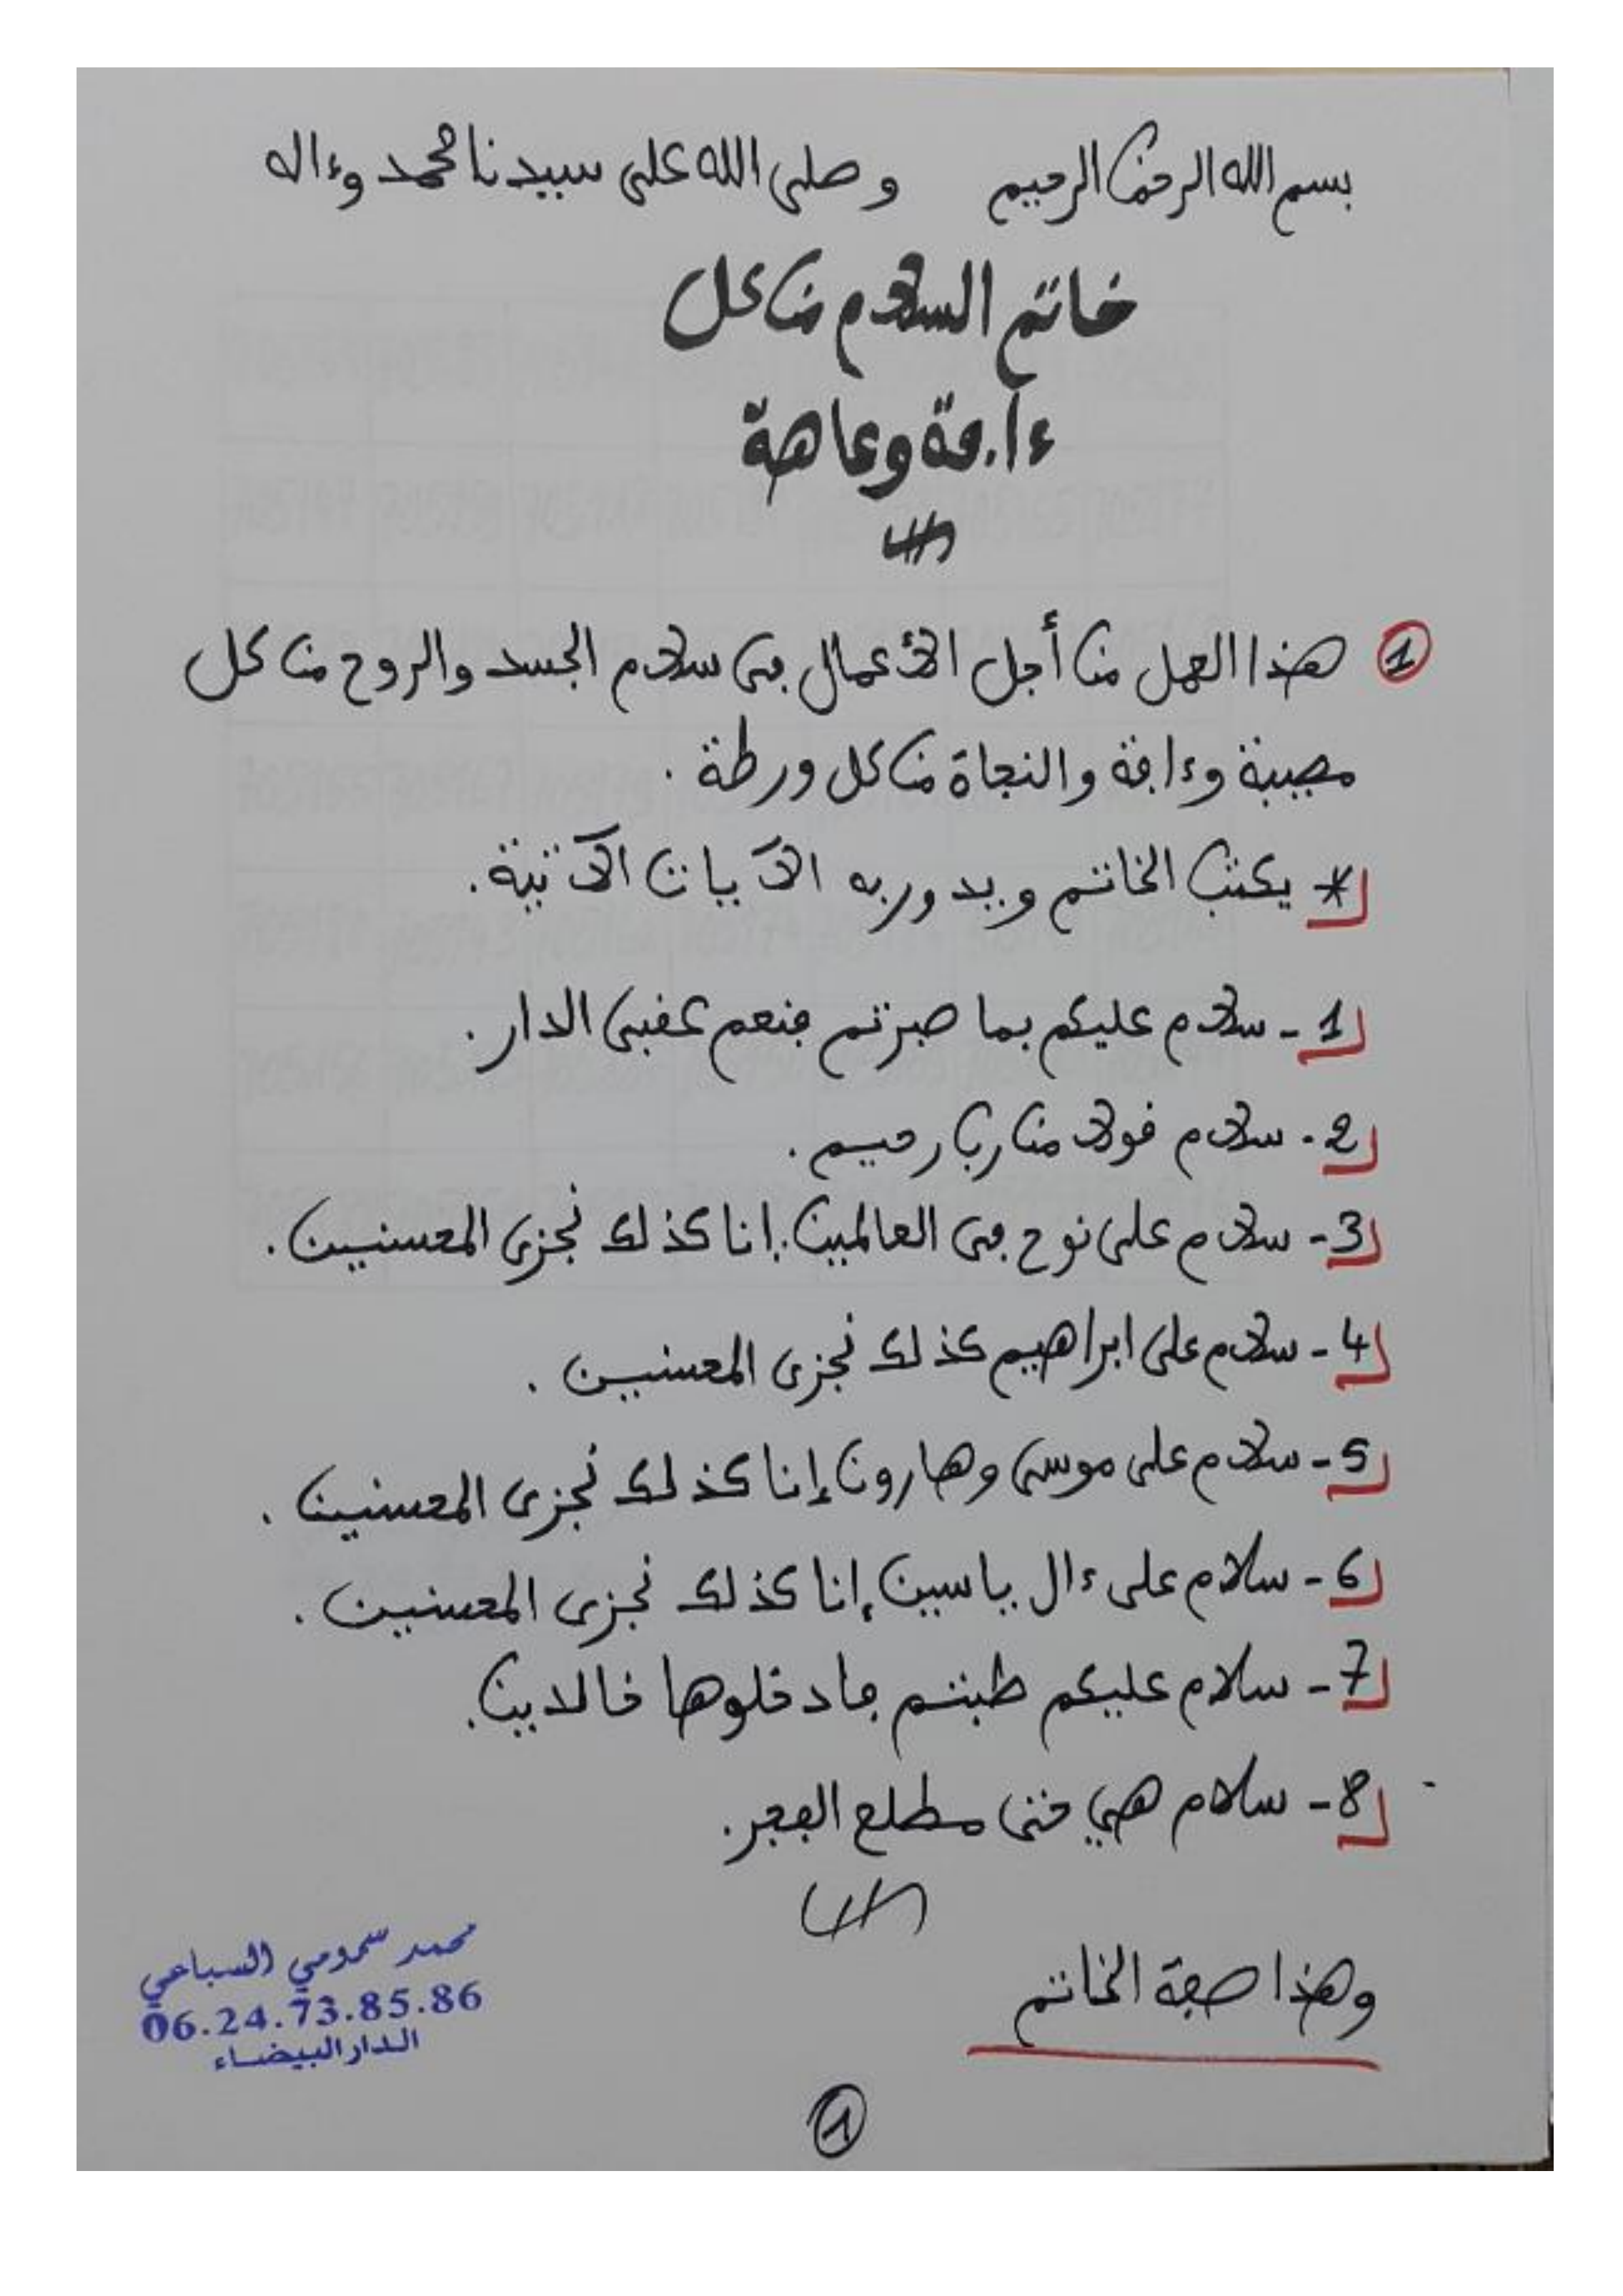 بسم الله الرحمن الرحيم وصلى الله على سيدنا محمد وءاله
خاتم السلام من كل
ءافة وعاهة
① هذا العمل من أجل الأعمال في سلام الجسد والروح من كل
مصيبة وءافة والنجاة من كل ورطة .
* يكتب الخاتم ويدور به الآيات الآتية .
1 - سلام عليكم بما صبرتم فنعم عقبى الدار .
2 - سلام قولا من رب رحيم .
3 - سلام على نوح في العالمين إنا كذلك نجزى المحسنين .
4 - سلام على ابراهيم كذلك نجزى المحسنين .
5 - سلام على موسى وهارون إنا كذلك نجزى المحسنين .
6 - سلام على ءال ياسين إنا كذلك نجزى المحسنين .
7 - سلام عليكم طبتم فادخلوها خالدين .
8 - سلام هي حتى مطلع الفجر .
وهذا صفة الخاتم
محمد سمومي السباعي
06.24.73.85.86
الدار البيضاء
①